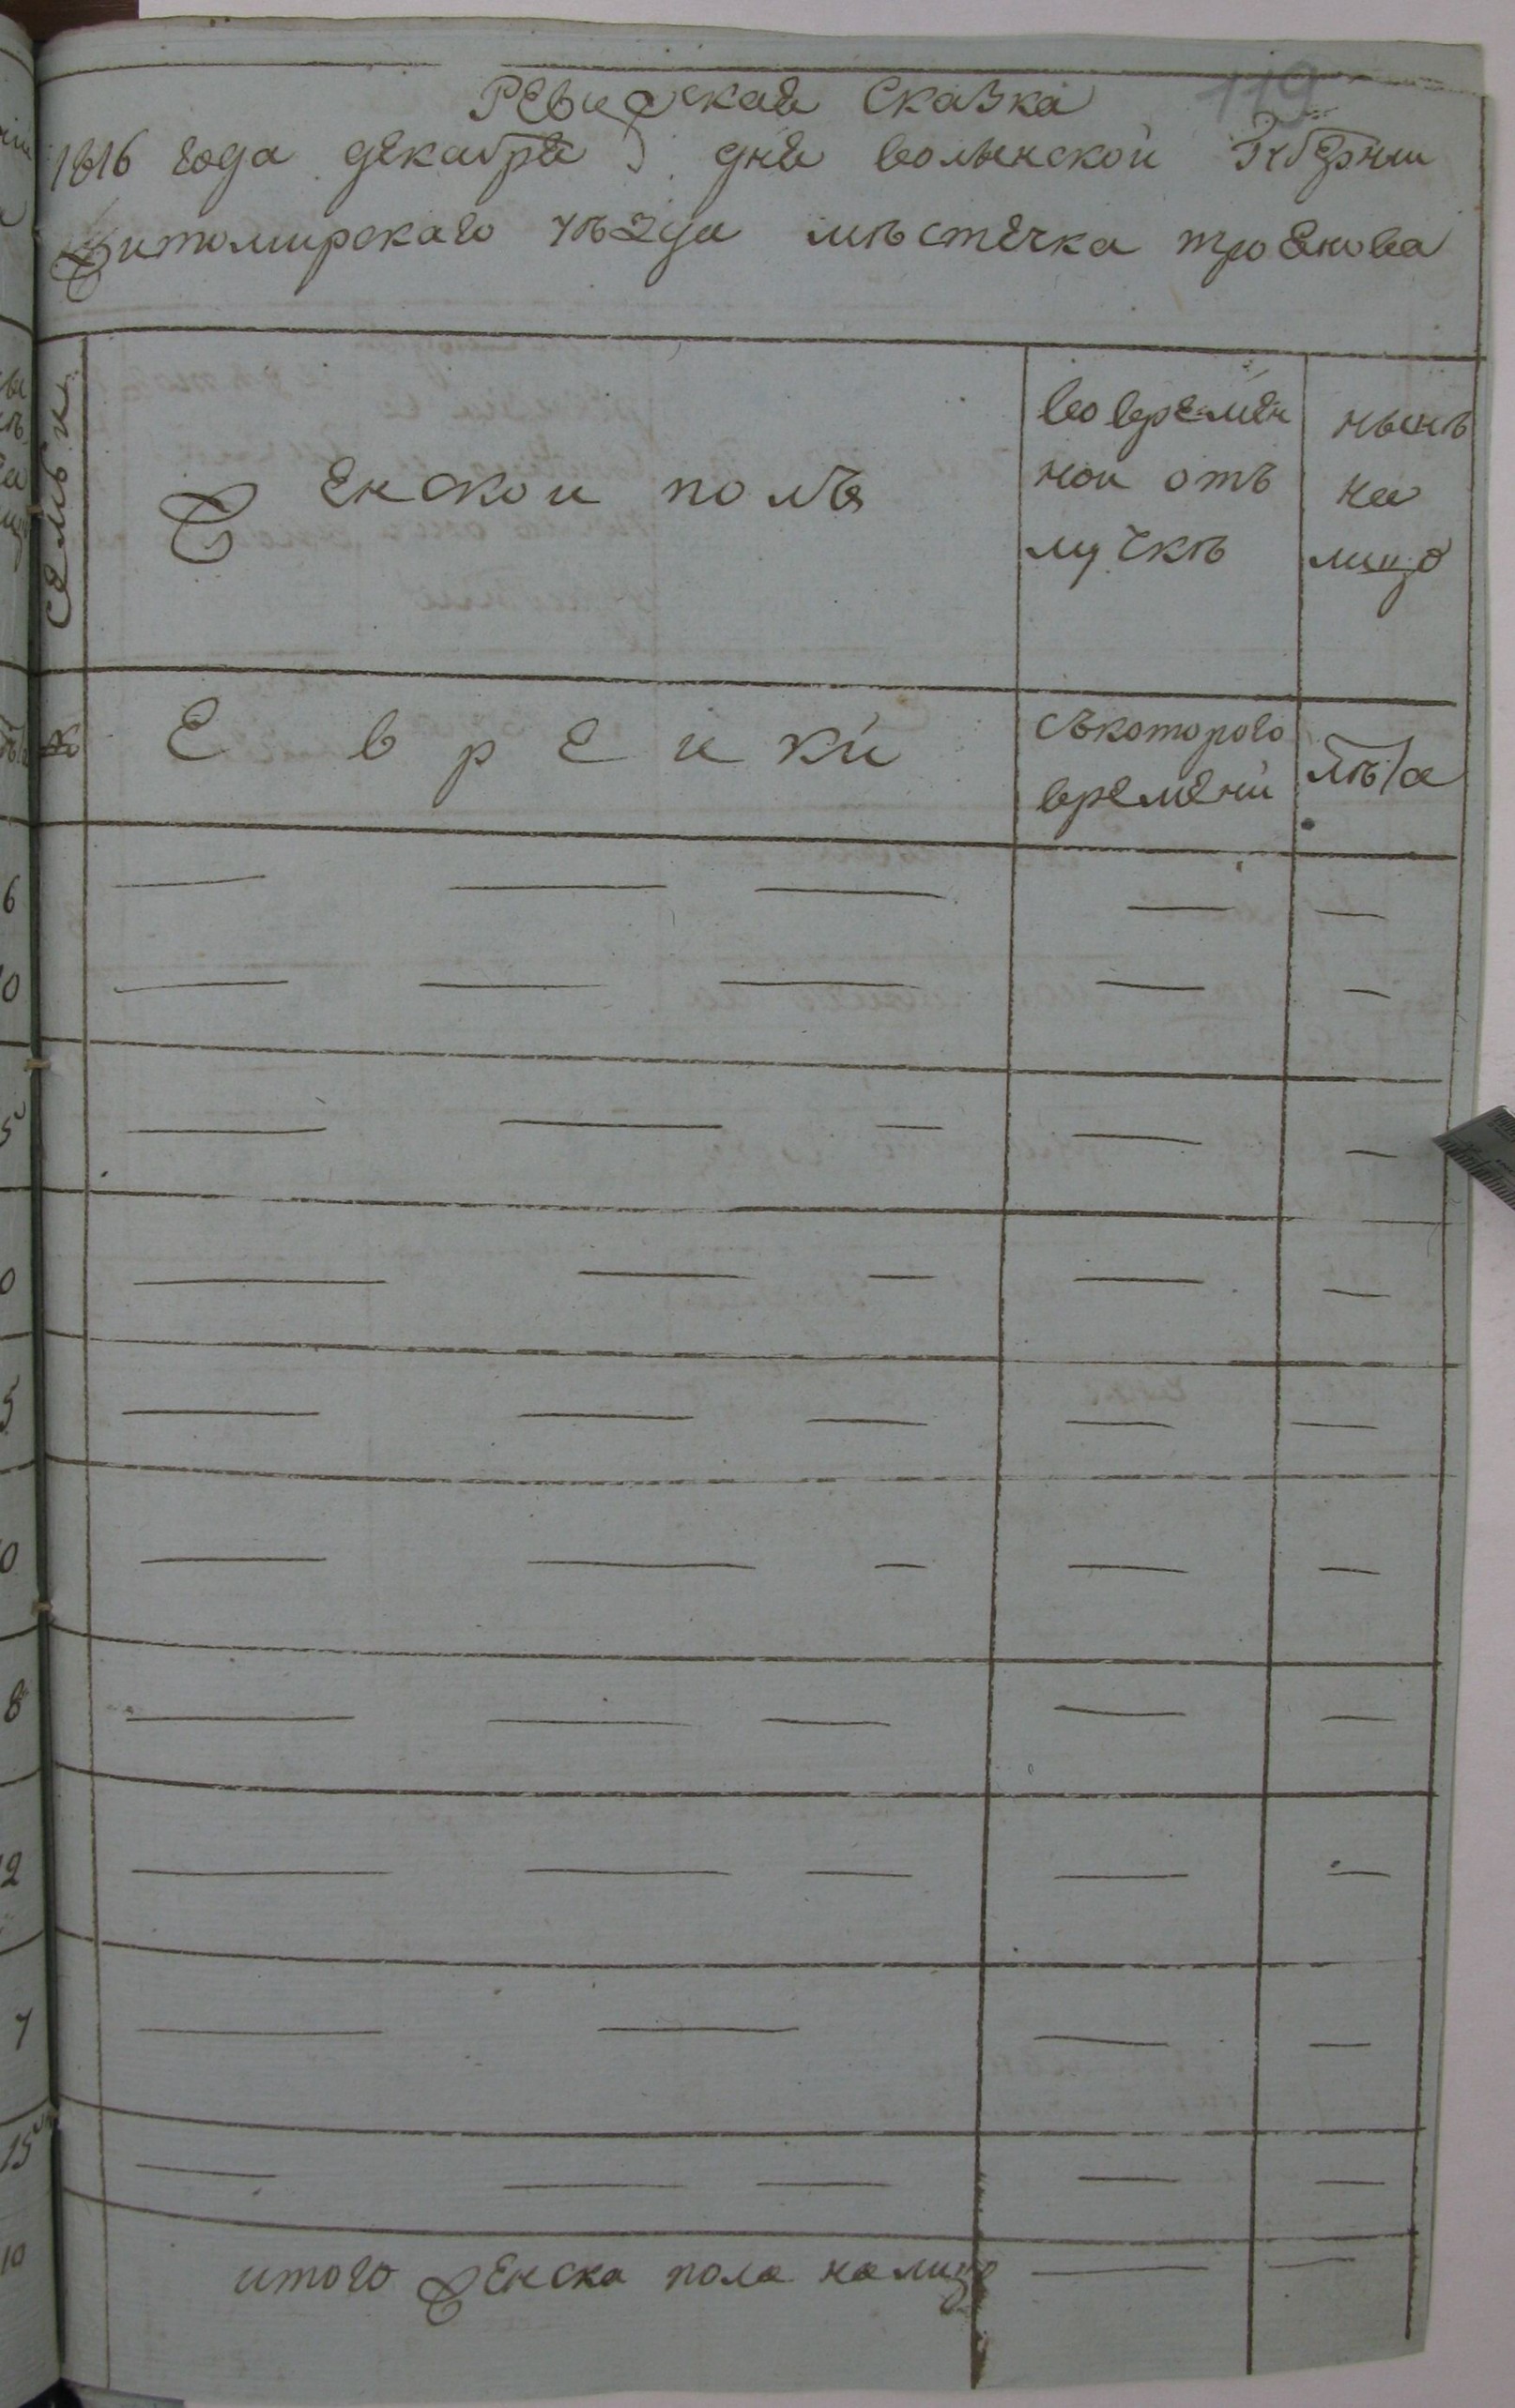 119
Ревизская Сказка
1816 года декабря дня волынской Губернии
Житомирскаго уѣзда мѣстечка троянова
семьи
Женской полъ
вовремен
ной отъ
лучкѣ
нынѣ
на
лицо
№
Евреики
съкоторого
времени
лѣта
итого Женска пола налицо
6
0
5
0
5
0
8
12
7
15
10